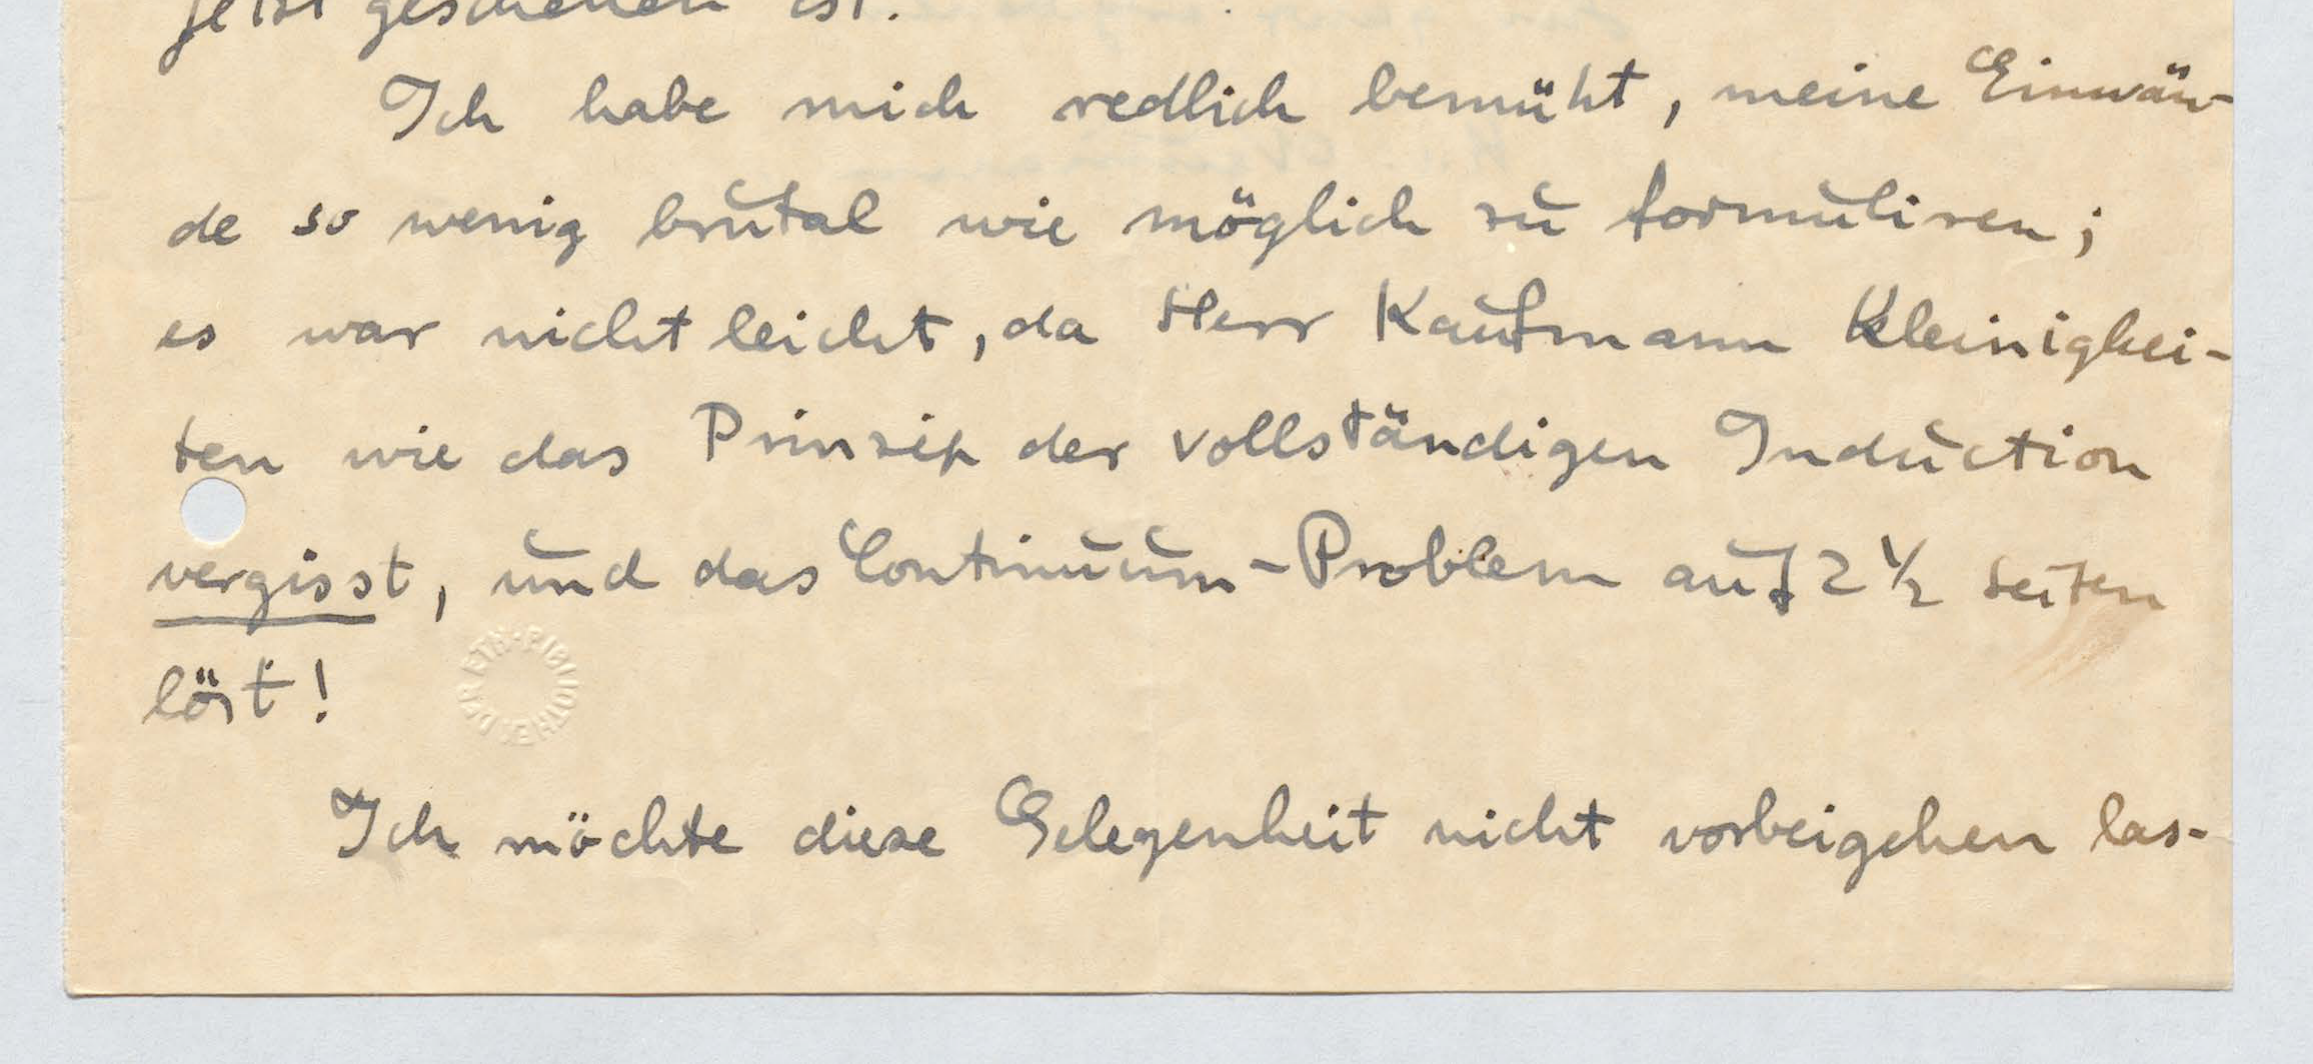 jetzt geschehen ist.
Ich habe mich redlich bemüht, meine Einwän-
de so wenig brutal wie möglich zu formuliren;
es war nicht leicht, da Herr Kaufmann Kleinigkei-
ten wie das Prinzip der vollständigen Induction
vergisst, und das Continuum-Problem auf 2 1/2 Seiten
löst!
DER ETH-BIBLIOTHEK
Ich möchte diese Gelegenheit nicht vorbeigehen las-